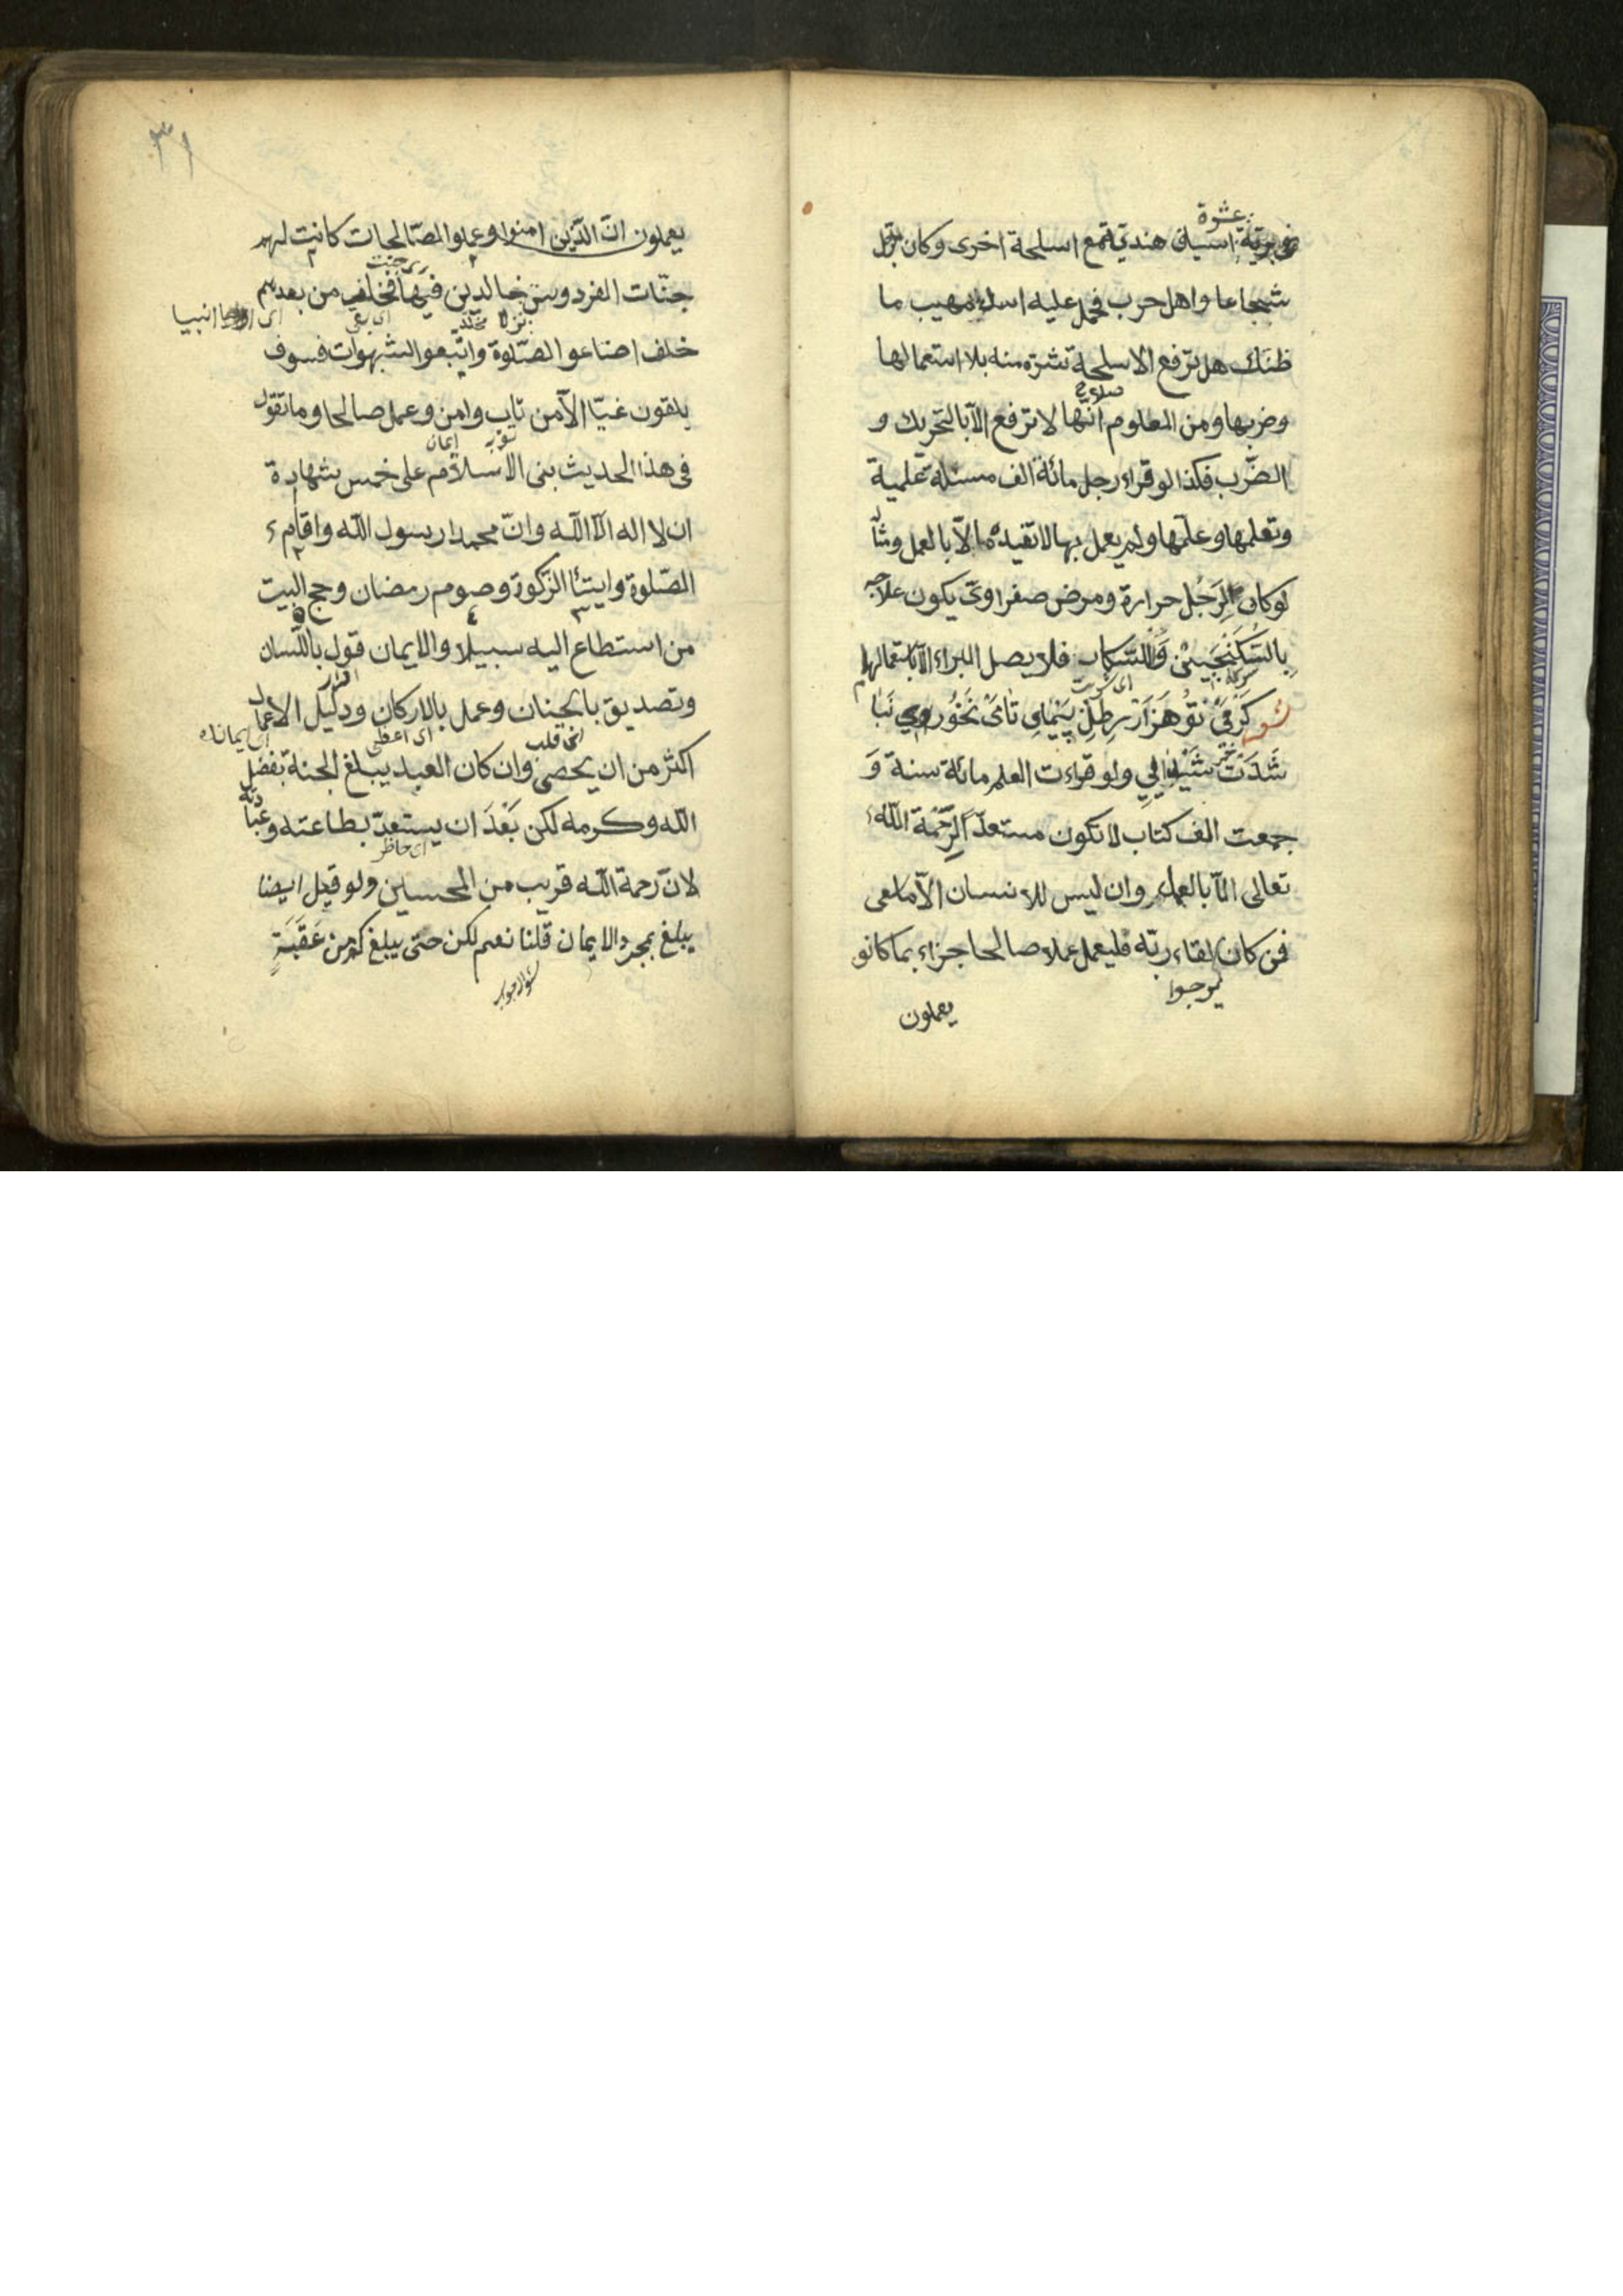 عشرة
فى برية اسياف هندية مع اسلحة اخرى وكان الرجل
شجاعا واهل حرب فحمل عليه اسد مهيب ما
ظنك هل ترفع الاسلحة شره منه بلا استعمالها
وضربها ومن المعلوم انها لا ترفع الا بالتحريك و
الضرب فكذا لو قراء رجل مائة الف مسئلة علمية
وتعلمها وعلمها ولم يعمل بها لا تفيده الا بالعمل
لو كان لرجل حرارة ومرض صفراوى يكون علاجه
بالسكنجبين فلا يصل البراء الا باستعمالها
كر فى تو هزار رطل پيماى تا مى نخورى نبا
شدت شيدايى ولو قراءت العلم مائة سنة و
جمعت الف كتاب لا تكون مستعدا لرحمة الله
تعالى الا بالعمل وان ليس للانسان الا ما سعى
فمن كان لقاء ربه فليعمل عملا صالحا جزاء بما كانو
يرجوا
يعملون
٣١
يعملون ان الذين امنوا وعملوا الصالحات كانت لهم
جنات الفردوس خالدين فيها فخلف من بعدهم
نزلا
انبيا
خلف اضاعو الصلوة واتبعو الشهوات فسوف
يلقون غيا الا من تاب وامن وعمل صالحا وما تقول
ايمان
فى هذا الحديث بنى الاسلام على خمس شهادة
ان لا اله الا الله وان محمدا رسول الله واقام
الصلوة وايتاء الزكوة وصوم رمضان وحج البيت
من استطاع اليه سبيلا والايمان قول باللسان
اقرار
وتصديق بالجنان وعمل بالاركان ودليل الاعمال
قلب
اكثر من ان يحصى وان كان العبد يبلغ الجنة بفضل
الله وكرمه لكن بعد ان يستعد بطاعته وعبادته
لان رحمة الله قريب من المحسنين ولو قيل ايضا
يبلغ بمجرد الايمان قلنا نعم لكن حتى يبلغ كم من عقبة